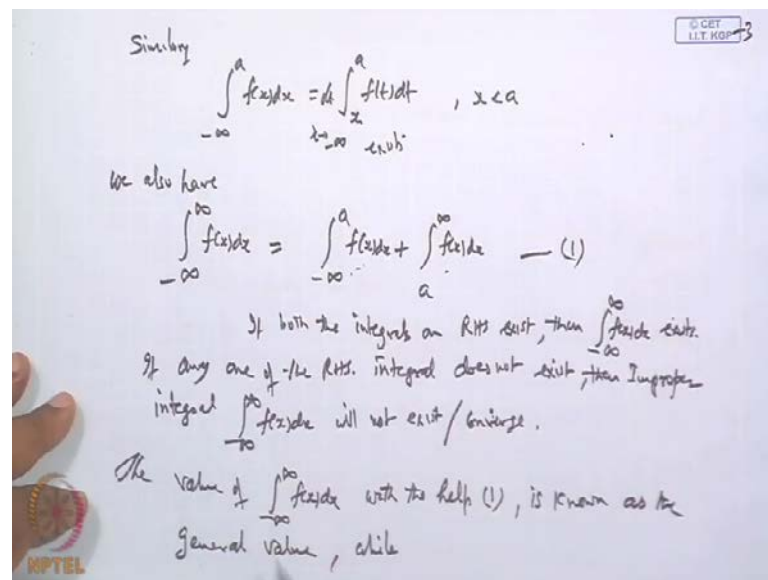 © CET
I.I.T. KGP
-3
Similarly
∫_{-∞}^{a} f(x)dx = lt_{x→-∞} ∫_{x}^{a} f(t)dt , x<a
exists
we also have
∫_{-∞}^{∞} f(x)dx = ∫_{-∞}^{a} f(x)dx + ∫_{a}^{∞} f(x)dx — (1)
If both the integrals on RHS exist, then ∫_{-∞}^{∞} f(x)dx exists.
If any one of the RHS. integral does not exist, then Improper
integral ∫_{-∞}^{∞} f(x)dx will not exist / Converge.
The value of ∫_{-∞}^{∞} f(x)dx with the help (1), is known as the
general value, while
NPTEL